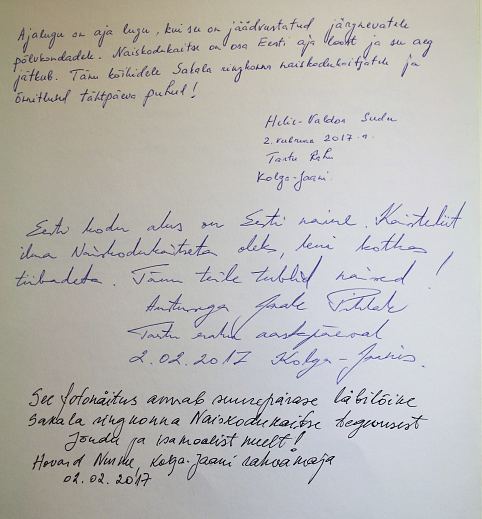 Ajalugu on aja lugu, kui see on jäädvustatud järgnevatele
põlvkondadele. Naiskodukaitse on osa Eesti aja loost ja see aeg
jätkub. Tänu kõikidele Sakala ringkonna naiskodukaitsjatele ja
õnnitlused tähtpäeva puhul!
Helir-Valdor Seeder
2. veebruar 2017. a.
Tartu Rahu
Kolga-Jaani.
Eesti kodu alus on Eesti naine. Kaitseliit
ilma Naiskodukaitseta oleks, kui kotkas
tiibadeta. Tänu teile tublid naised!
Austusega Jaak Pihlak
Tartu rahu aastapäeval
2.02.2017 Kolga-Jaanis.
See fotonäitus annab suurepärase läbilõike
Sakala ringkonna Naiskodukaitse tegevusest
Jõudu ja isamaalist meelt!
Hovard Nurme, Kolga-Jaani rahvamaja
02.02.2017